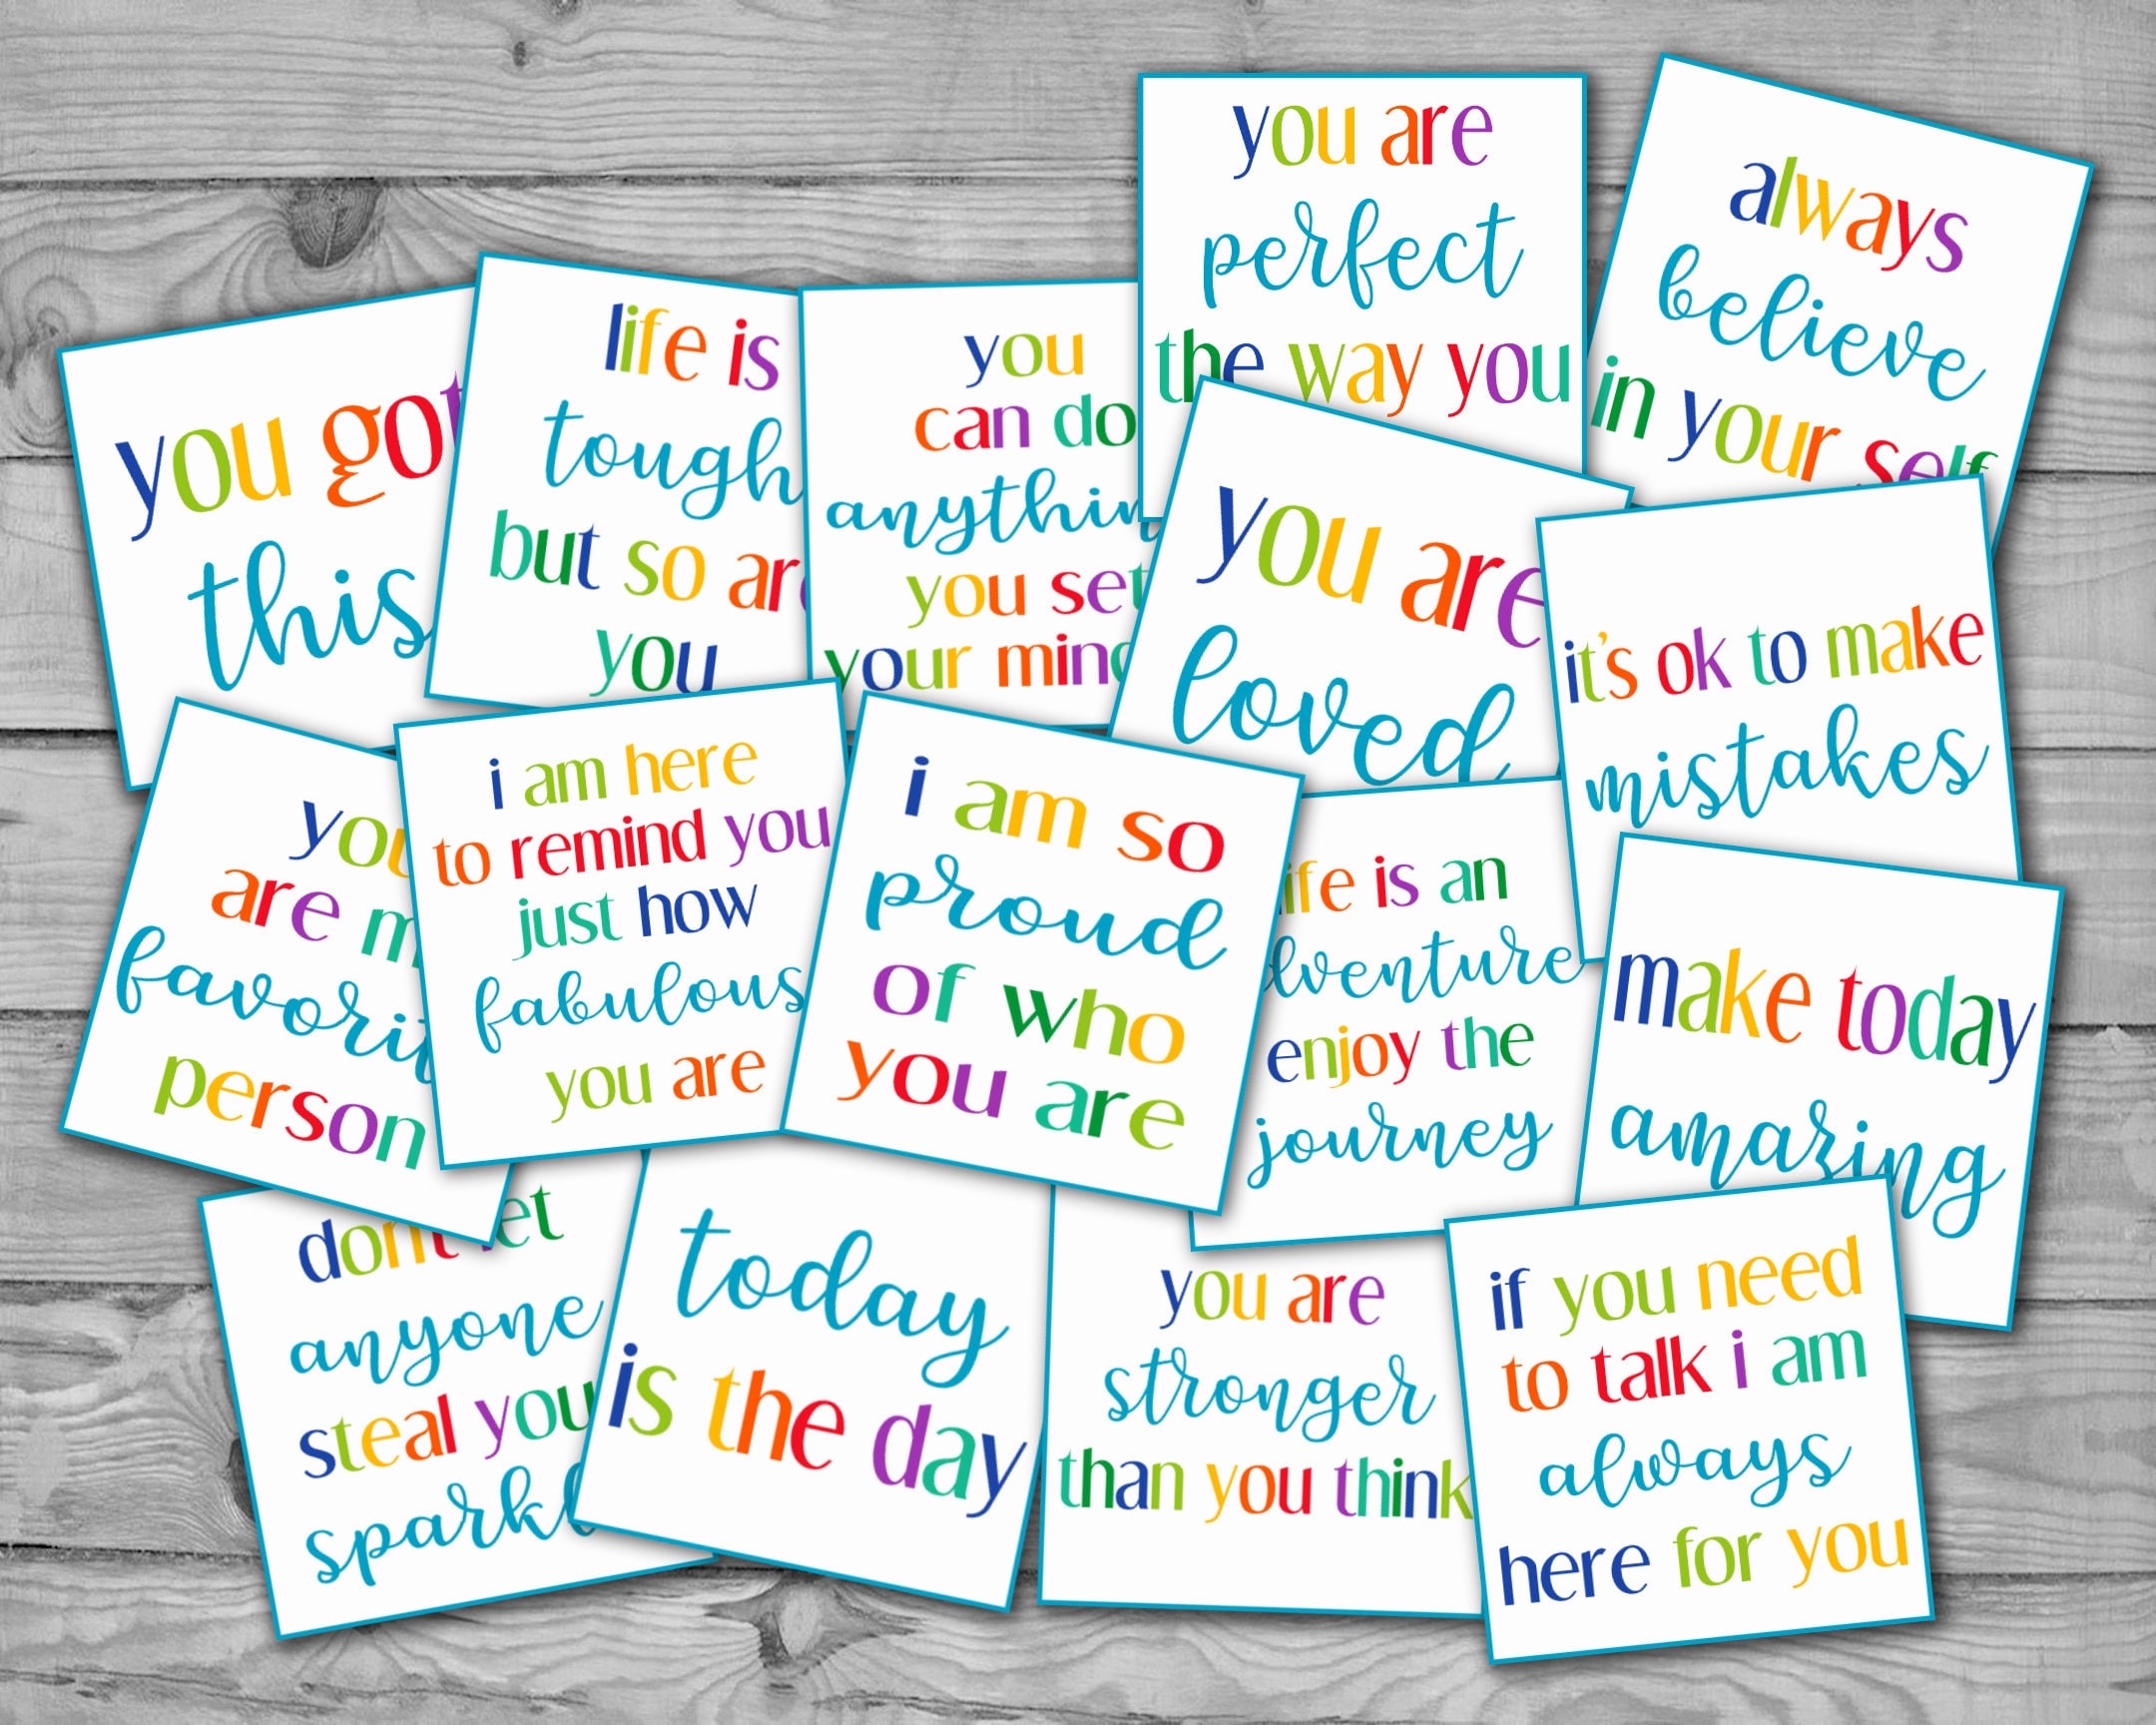 you are
perfect
the way you
always
believe
in your self
you got
this
life is
tough
but so are
you
you
can do
anything
you set
your mind
you are
loved
it's ok to make
mistakes
you
are
favorite
person
i am here
to remind you
just how
fabulous
you are
i am so
proud
of who
you are
life is an
adventure
enjoy the
journey
make today
amazing
don't let
anyone
steal your
sparkle
today
is the day
you are
stronger
than you think
if you need
to talk i am
always
here for you